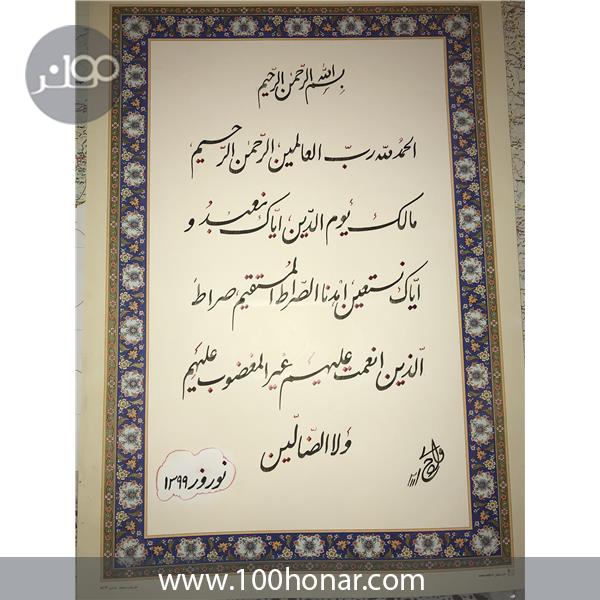 بسم الله الرحمن الرحیم
الحمد لله رب العالمین الرحمن الرحیم
مالک یوم الدین ایاک نعبد و
ایاک نستعین اهدنا الصراط المستقیم صراط
الذین انعمت علیهم غیر المغضوب علیهم
ولا الضالین
نوروز ۱۳۹۹
www.100honar.com